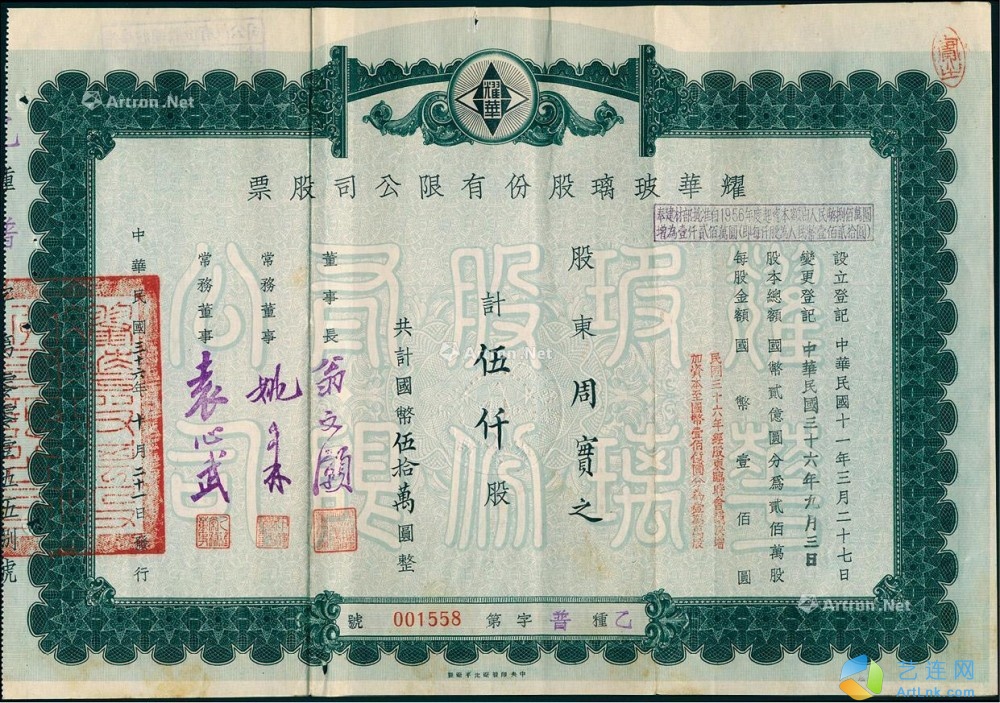 耀華
耀華玻璃股份有限公司股票
奉建材部批准自1956年度起資本額由人民幣捌佰萬圓
增為壹仟貳佰萬圓(即每仟股為人民幣壹佰貳拾圓)
設立登記 中華民國十一年三月二十七日
變更登記 中華民國三十六年九月三日
股本總額 國幣貳億圓分為貳佰萬股
每股金額 國幣壹佰圓
民國三十六年經股東臨時會
股東周實之
計伍仟股
共計國幣伍拾萬圓整
董事長 翁文灝
常務董事
常務董事 袁心武
中華民國三十六年十月三十一日發行
耀華玻璃股份有限公司
乙種普字第 001558 號
中央印製廠北平廠製
Artron.Net
Artron.Net
Artron.Net
艺连网
ArtLnk.com